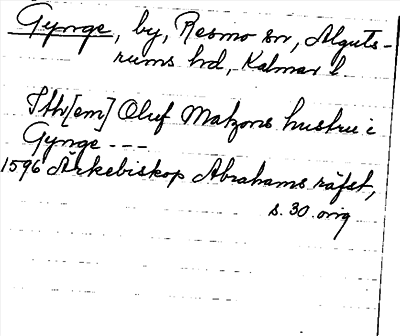 Gynge, by, Resmo sn, Alguts-
rums hd, Kalmar l
Sth[em] Oluf Matzons hustru i
Gynge ---
1596 Ärkebiskop Abrahams räfst,
s. 30. orig